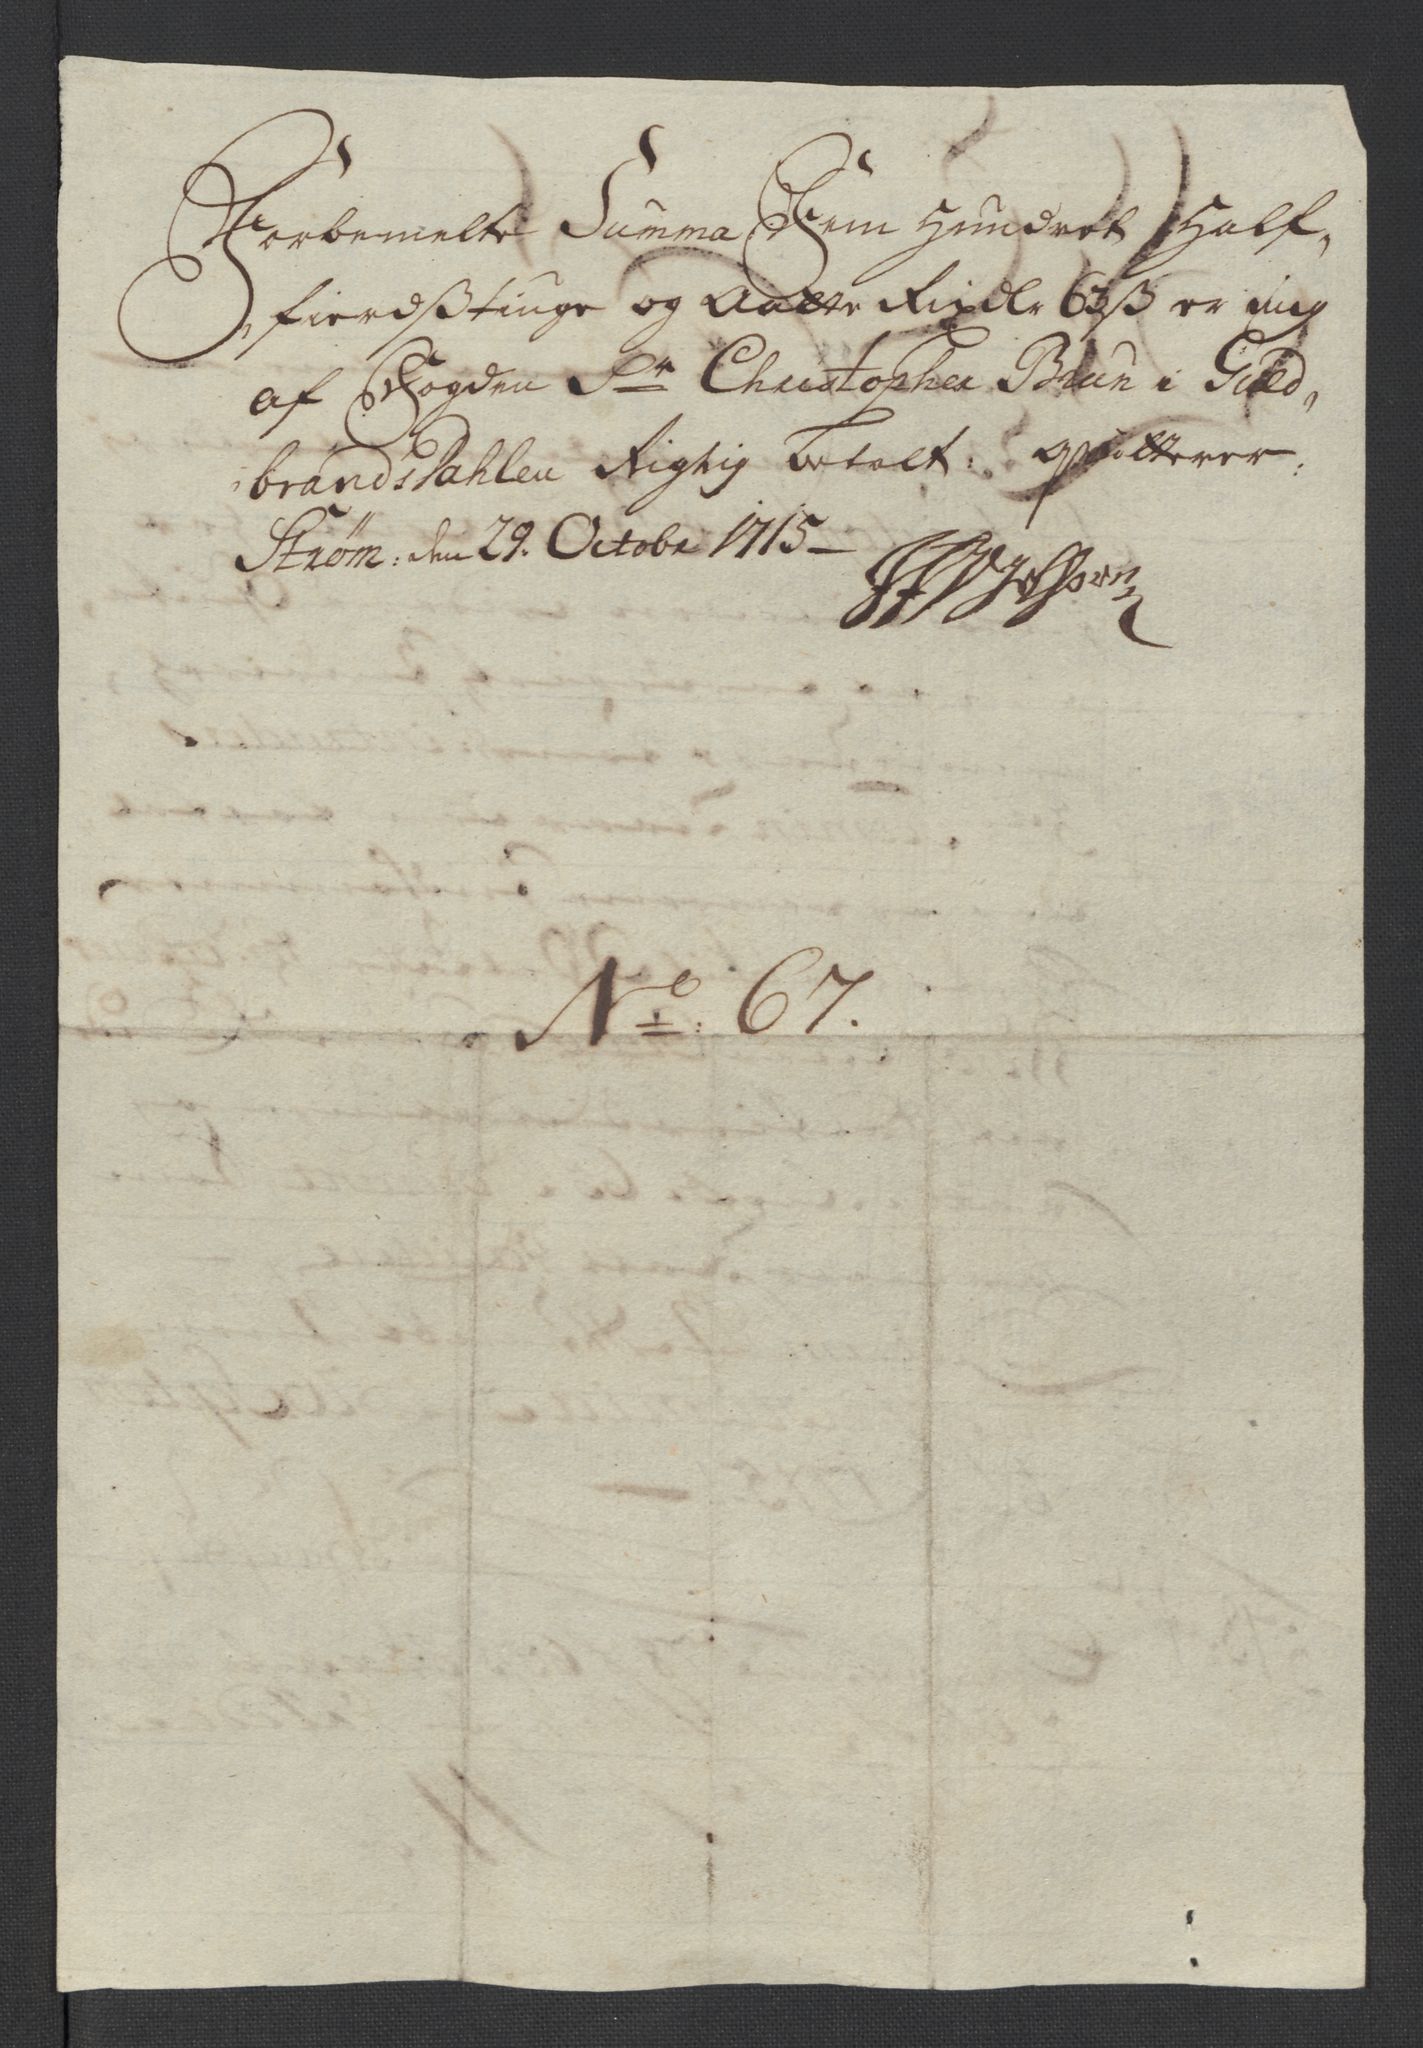 Forbemelte Summa Fem Hundret Half,
fierdßtiuge og Aatte Rixdlr 63ß er mig
af Fogden Sr Christopher Brun i Guld,
brandsDahlen Rigtig betalt. qvitterer.
Strøm: den 29. Octobr 1715
No: 67.